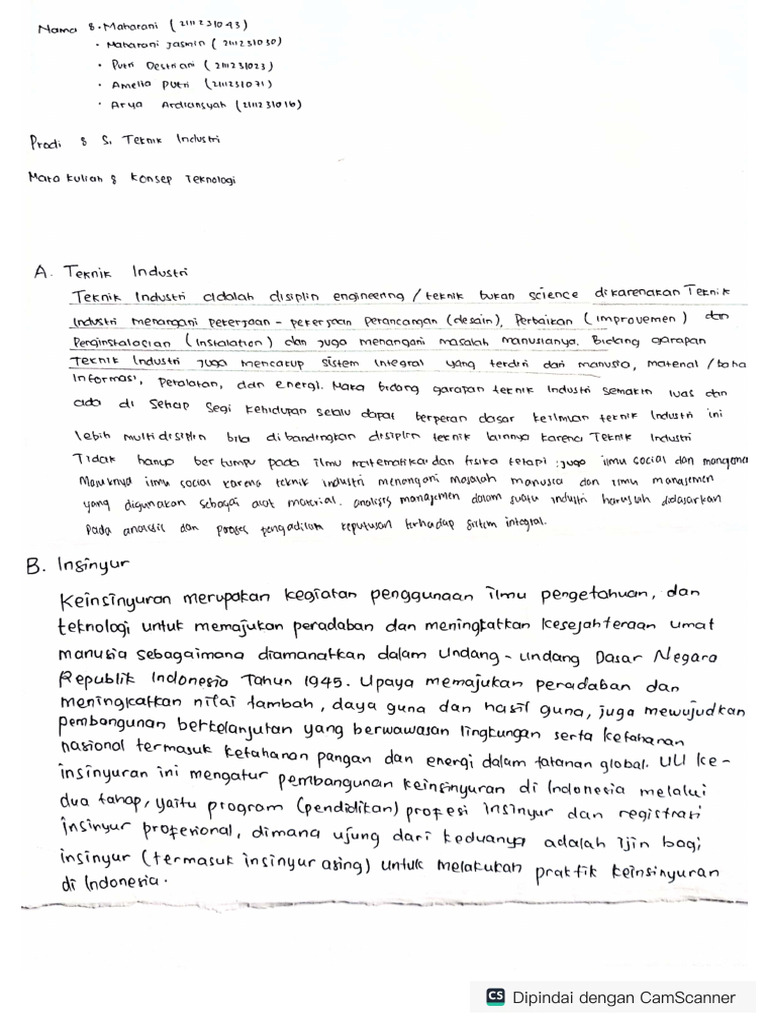 Nama : • Maharani (2111231043)
• Maharani Jasmin (2111231030)
• Putri Destriani (2111231023)
• Amelia Putri (2111231071)
• Arya Ardiansyah (2111231016)
Prodi : S1 Teknik Industri
Mata kuliah : Konsep Teknologi
A. Teknik Industri
Teknik Industri adalah disiplin engineering / teknik bukan science dikarenakan Teknik
Industri menangani pekerjaan - pekerjaan perancangan (desain), Perbaikan (improvemen) dan
Penginstalasian (Instalation) dan juga menangani masalah manusianya. Bidang garapan
Teknik Industri juga mencakup sistem integral yang terdiri dari manusia, material / baha
Informasi, peralatan, dan energi. Maka bidang garapan teknik Industri semakin luas dan
ada di setiap segi kehidupan selalu dapat berperan dasar keilmuan teknik Industri ini
lebih multi disiplin bila dibandingkan disiplin teknik lainnya karena Teknik Industri
Tidak hanya bertumpu pada ilmu matematika dan fisika tetapi juga ilmu social dan manajeme
Masuknya ilmu social karena teknik industri menangani masalah manusia dan ilmu manajemen
yang digunakan sebagai alat material. analisis manajemen dalam suatu industri haruslah didasarkan
Pada analisis dan proses pengadilan keputusan terhadap sistem integral.
B. Insinyur
Keinsinyuran merupakan kegiatan penggunaan ilmu pengetahuan, dan
teknologi untuk memajukan peradaban dan meningkatkan kesejahteraan umat
manusia sebagaimana diamanatkan dalam Undang-undang Dasar Negara
Republik Indonesia Tahun 1945. Upaya memajukan peradaban dan
meningkatkan nilai tambah, daya guna dan hasil guna, juga mewujudkan
pembangunan berkelanjutan yang berwawasan lingkungan serta ketahanan
nasional termasuk ketahanan pangan dan energi dalam tatanan global. UU ke-
insinyuran ini mengatur pembangunan keinsinyuran di Indonesia melalui
dua tahap, yaitu program (pendidikan) profesi insinyur dan registrasi
insinyur profesional, dimana ujung dari keduanya adalah ijin bagi
insinyur (termasuk insinyur asing) untuk melakukan praktik keinsinyuran
di Indonesia.
CS Dipindai dengan CamScanner